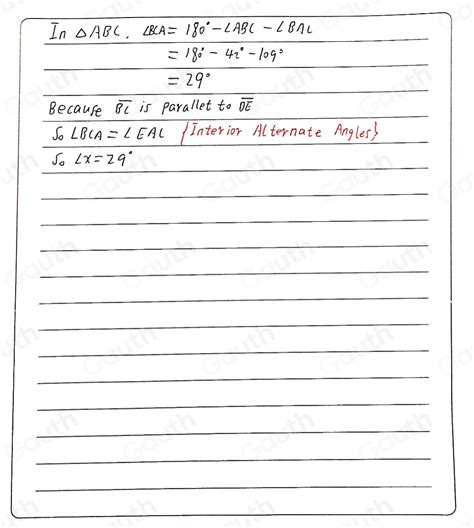 In △ABC. ∠BCA = 180° - ∠ABC - ∠BAC
= 180° - 42° - 109°
= 29°
Because BC is parallel to DE
So ∠BCA = ∠EAC {Interior Alternate Angles}
So ∠x = 29°